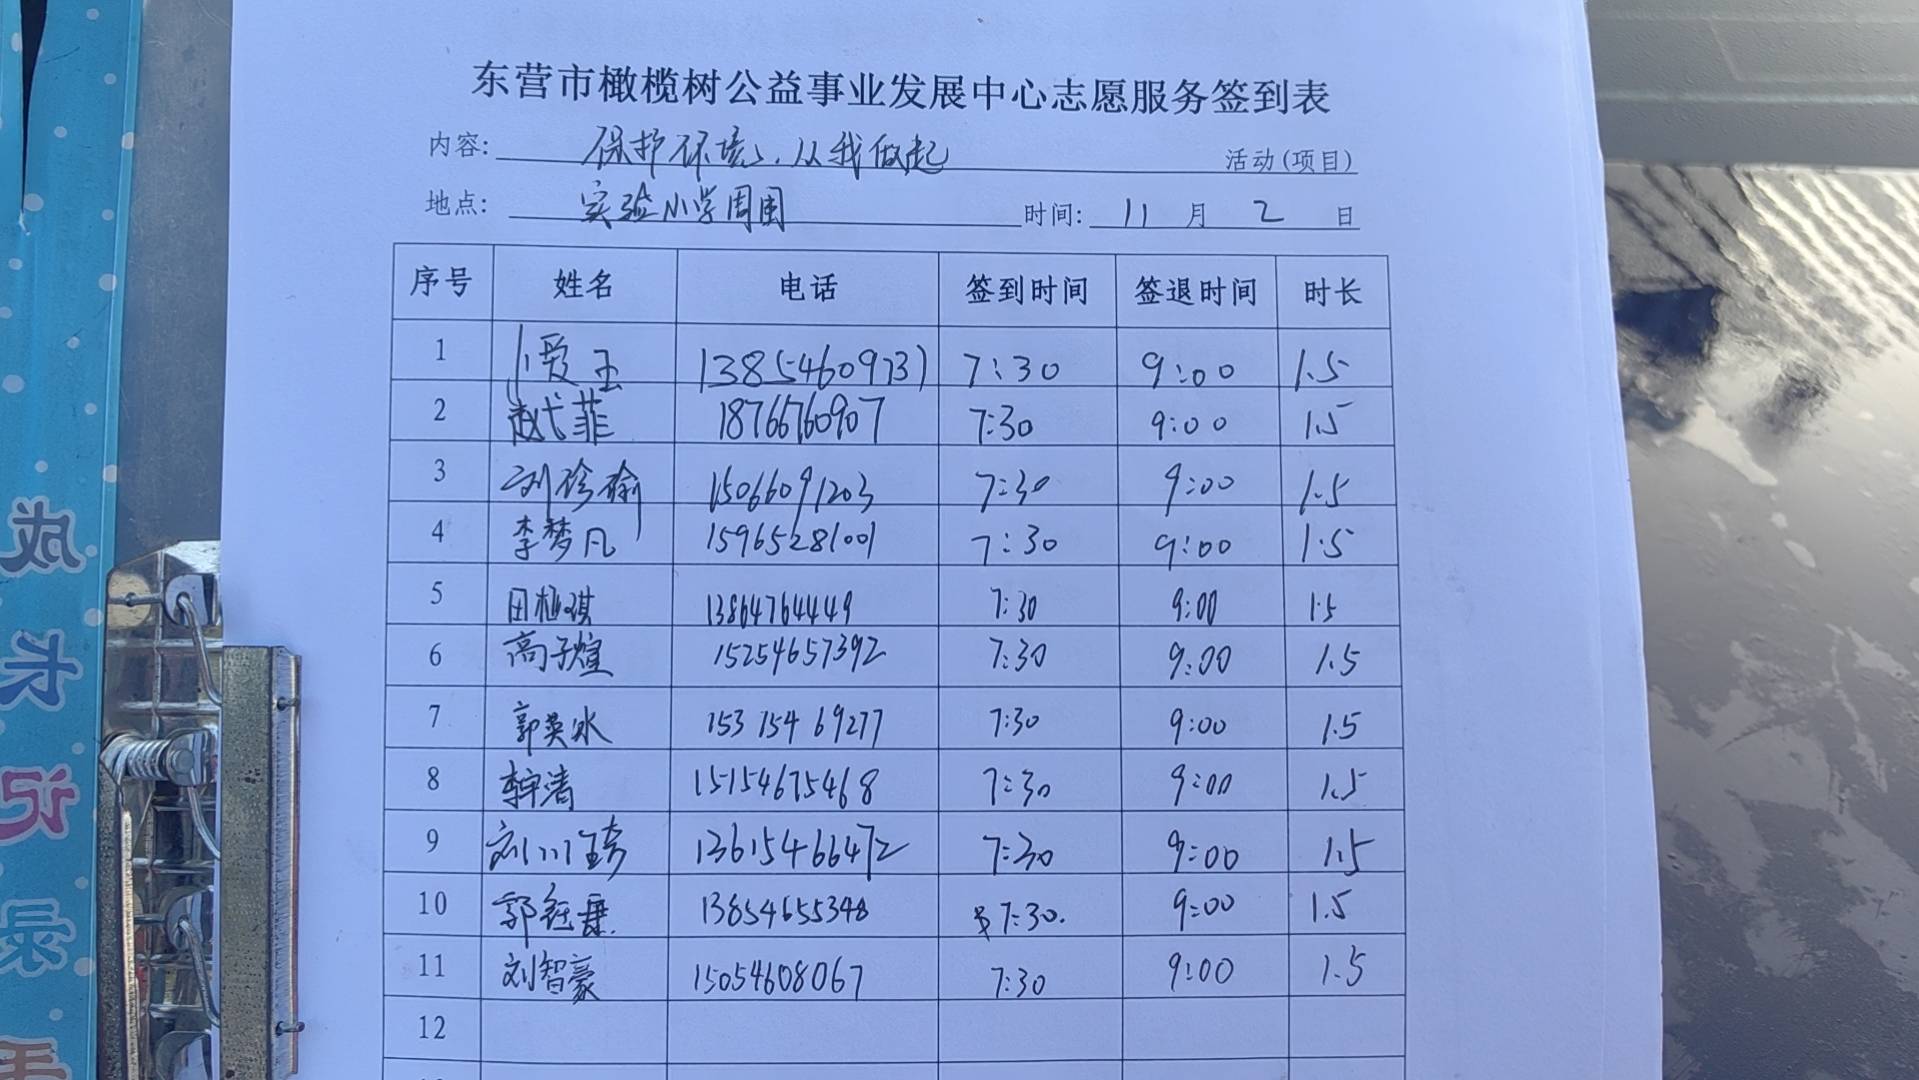 东营市橄榄树公益事业发展中心志愿服务签到表
内容: 保护环境、从我做起 活动(项目)
地点: 实验小学周围 时间: 11 月 2 日
序号 姓名 电话 签到时间 签退时间 时长
1 13854609731 7:30 9:00 1.5
2 赵代菲 18766760907 7:30 9:00 1.5
3 刘珍瑜 15066091203 7:30 9:00 1.5
4 李梦凡 15965281001 7:30 9:00 1.5
5 田植琪 13864764449 7:30 9:00 1.5
6 高子煊 15254657392 7:30 9:00 1.5
7 郭英冰 153 154 69277 7:30 9:00 1.5
8 15154675468 7:30 9:00 1.5
9 刘川 13615466472 7:30 9:00 1.5
10 郭钰 13854655348 7:30. 9:00 1.5
11 刘智豪 15054608067 7:30 9:00 1.5
12
成长记录手